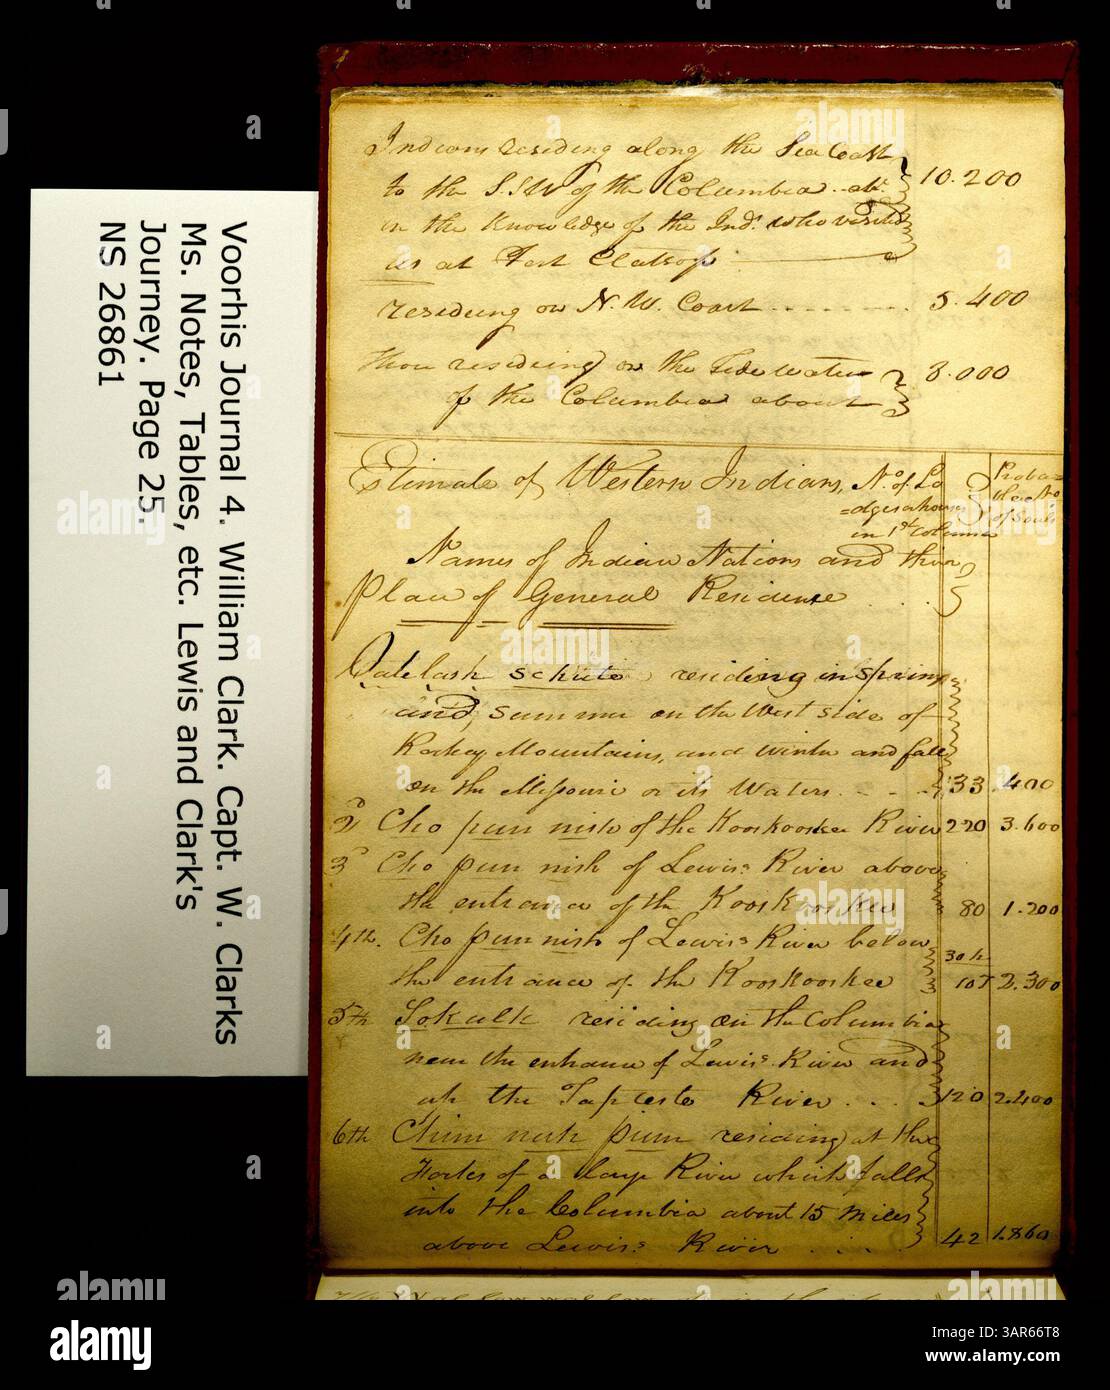 Voorhis Journal 4. William Clark. Capt. W. Clarks
Ms. Notes, Tables, etc. Lewis and Clark's
Journey. Page 25.
NS 26861
Indians residing along the Sea Coast
to the S.S.W of the Columbia 10.200
in the Knowledge of the Inds. who visited
us at Fort Clatsop
residing on N. W. Coast 5.400
residing on the Tide water 3.000
of the Columbia about
Estimate of Western Indians, No. of Lo Proba=
=dges or houses ble No
in 1st Columm of Souls
Names of Indian Nations and their
Place of General Residence
Oatelash schute residing in Spring
and summer on the West side of
Rockey Mountains, and winter and fall
on the Missouri or its Waters 33 .400
2d Cho pun nish of the Kooskooskee River 220 3.600
3d Cho pun nish of Lewis's River above
the entrance of the Kooskooskee 80 1.200
4th. Cho pun nish of Lewis's River below 30 h
the entrance of the Kooskooskee 107 2.300
5th Sokulk residing on the Columbia
near the entrance of Lewis's River and
up the Tapteete River 120 2.400
6th Chim nah pum residing at the
Forks of a large River which falls
into the Columbia about 15 miles
above Lewis's River 42 1.860
alamy
Image ID: 3AR66T8
www.alamy.com